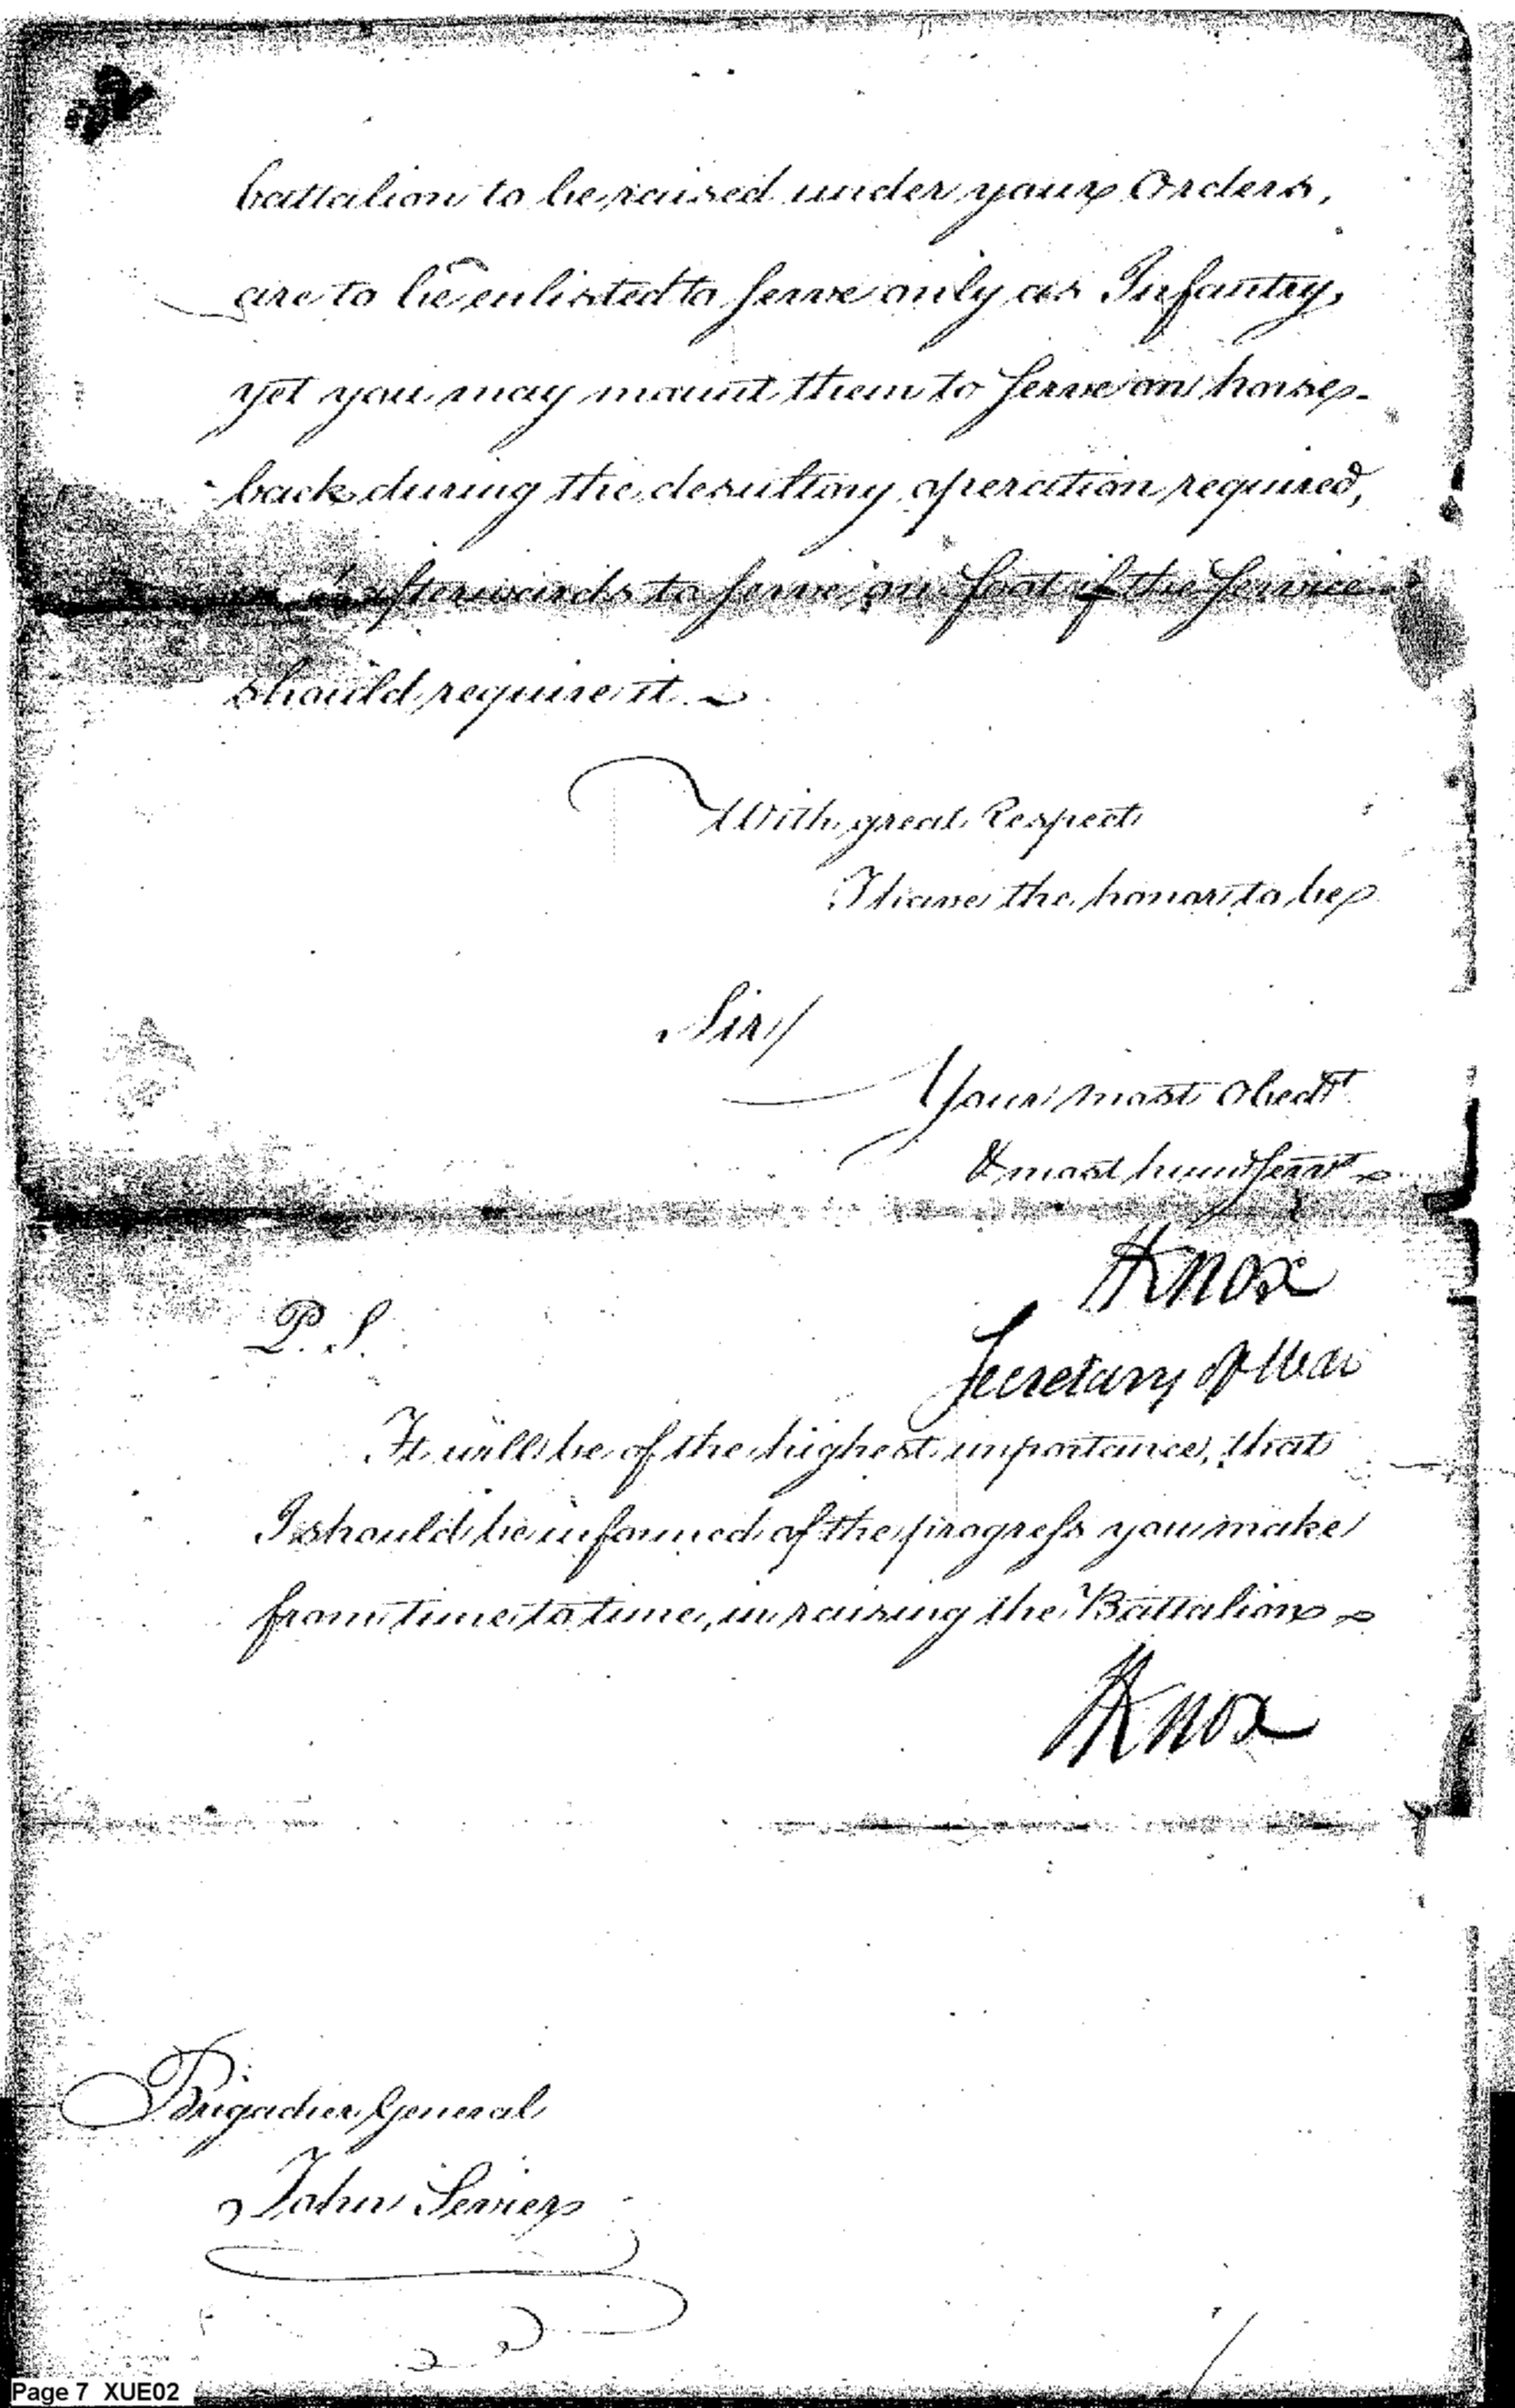 battalion to be raised under your Orders,
are to be enlisted to serve only as Infantry,
yet you may mount them to serve on horse-
back during the desultory operation required,
afterwards to serve on foot if the service
should require it.
With great Respect
I have the honor to be
Sir/
Your most Obedt
& most hum Servt
HKnox
Secretary of War
P. S.
It will be of the highest importance, that
I should be informed of the progress you make
from time to time, in raising the Battalion
HKnox
Brigadier General
John Sevier
Page 7 XUE02